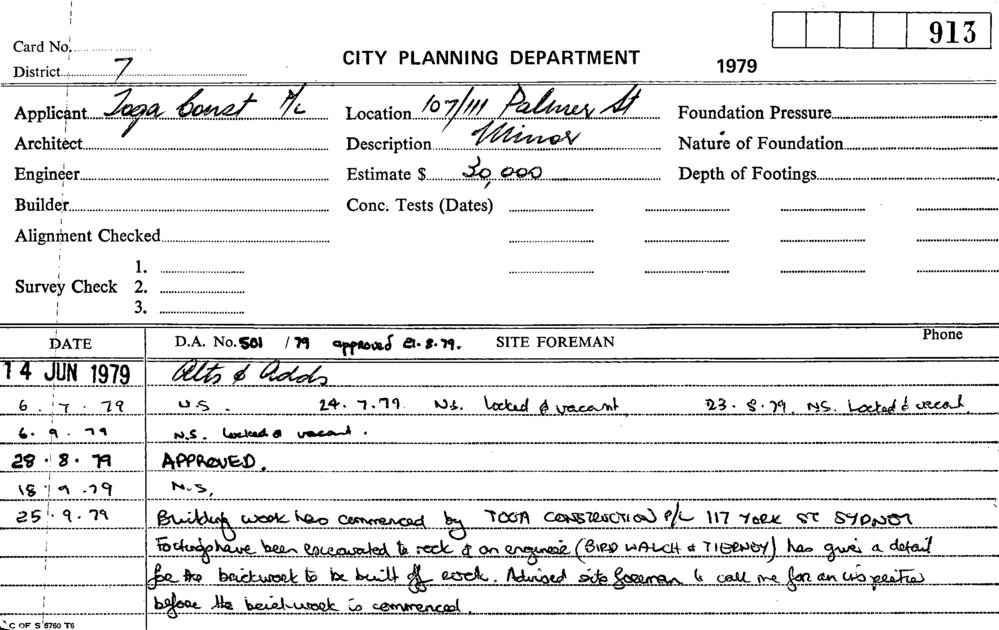 913
Card No.
CITY PLANNING DEPARTMENT
1979
District 7
Applicant Toga Const P/L Location 107/111 Palmer St Foundation Pressure
Architect Description Minor Nature of Foundation
Engineer Estimate $ 30,000 Depth of Footings
Builder Conc. Tests (Dates)
Alignment Checked
1.
Survey Check 2.
3.
DATE D.A. No. 501 / 79 approved 21.8.79. SITE FOREMAN Phone
14 JUN 1979 Alts & Adds
6 . 7 . 79 U.S. 24.7.79. N.S. Locked & vacant 23.8.79. N.S. Locked & vacant
6. 9. 79 N.S. Locked & vacant.
28.8.79 APPROVED.
18.9.79 N.S.
25.9.79 Building work has commenced by TOGA CONSTRUCTION P/L 117 YORK ST SYDNEY
Footings have been excavated to rock & an engineer (BIRD WALCH & TIERNEY) has given a detail
for the brickwork to be built off rock. Advised site foreman to call me for an inspection
before the brickwork is commenced.
C OF S 5760 T6